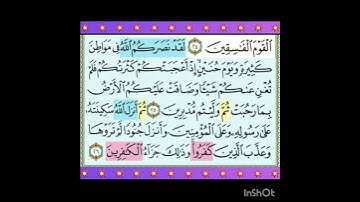 الْقَوْمَ الْفَاسِقِينَ ٢٤ لَقَدْ نَصَرَكُمُ اللَّهُ فِي مَوَاطِنَ
كَثِيرَةٍ وَيَوْمَ حُنَيْنٍ إِذْ أَعْجَبَتْكُمْ كَثْرَتُكُمْ فَلَمْ
تُغْنِ عَنكُمْ شَيْئًا وَضَاقَتْ عَلَيْكُمُ الْأَرْضُ
بِمَا رَحُبَتْ ثُمَّ وَلَّيْتُم مُّدْبِرِينَ ٢٥ ثُمَّ أَنزَلَ اللَّهُ سَكِينَتَهُ
عَلَىٰ رَسُولِهِ وَعَلَى الْمُؤْمِنِينَ وَأَنزَلَ جُنُودًا لَّمْ تَرَوْهَا
وَعَذَّبَ الَّذِينَ كَفَرُوا وَذَٰلِكَ جَزَاءُ الْكَافِرِينَ ٢٦
InShOt